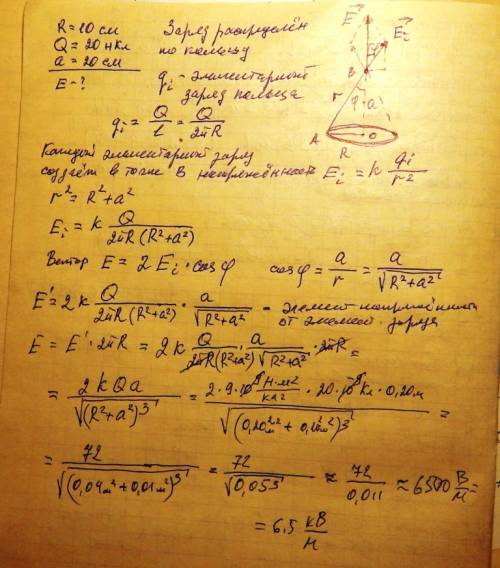 R = 10 см
Q = 20 нКл
a = 20 см
E - ?
Заряд распределён
по кольцу
q_i - элементарный
заряд кольца
q_i = Q/l = Q/2πR
E⃗
E⃗_i
B
φ
r
φ a
A
O
R
Каждый элементарный заряд
создаёт в точке B напряжённость E_i = k q_i/r²
r² = R² + a²
E_i = k Q/2πR(R²+a²)
Вектор E = 2E_i · cosφ cosφ = a/r = a/√(R²+a²)
E' = 2k Q/2πR(R²+a²) · a/√(R²+a²) - элемент напряжённости
от элемент. заряда
E = E' · 2πR = 2k Q/2πR(R²+a²) · a/√(R²+a²) · 2πR =
= 2kQa/√(R²+a²)³ = 2·9·10⁹ Н·м²/Кл² · 20·10⁻⁹ Кл · 0,20м / =
= 72/√(0,04м²+0,01м²)³ = 72/√0,05³ ≈ 72/0,011 ≈ 6500 В/м =
= 6,5 кВ/м